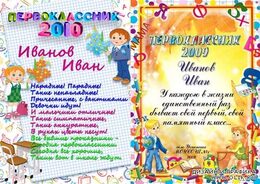 ПЕРВОКЛАССНИК
2010
Иванов
Иван
Нарядные! Парадные!
Такие ненаглядные!
Причесанные, с бантиками
Девочки идут!
И мальчики отличные
Такие симпатичные,
Такие аккуратные,
В руках цветы несут!
Все бывшие
первоклассники
ПЕРВОКЛАССНИК
2009
Иванов
Иван
У каждого в жизни
единственный раз
бывает свой первый, свой
памятный класс...